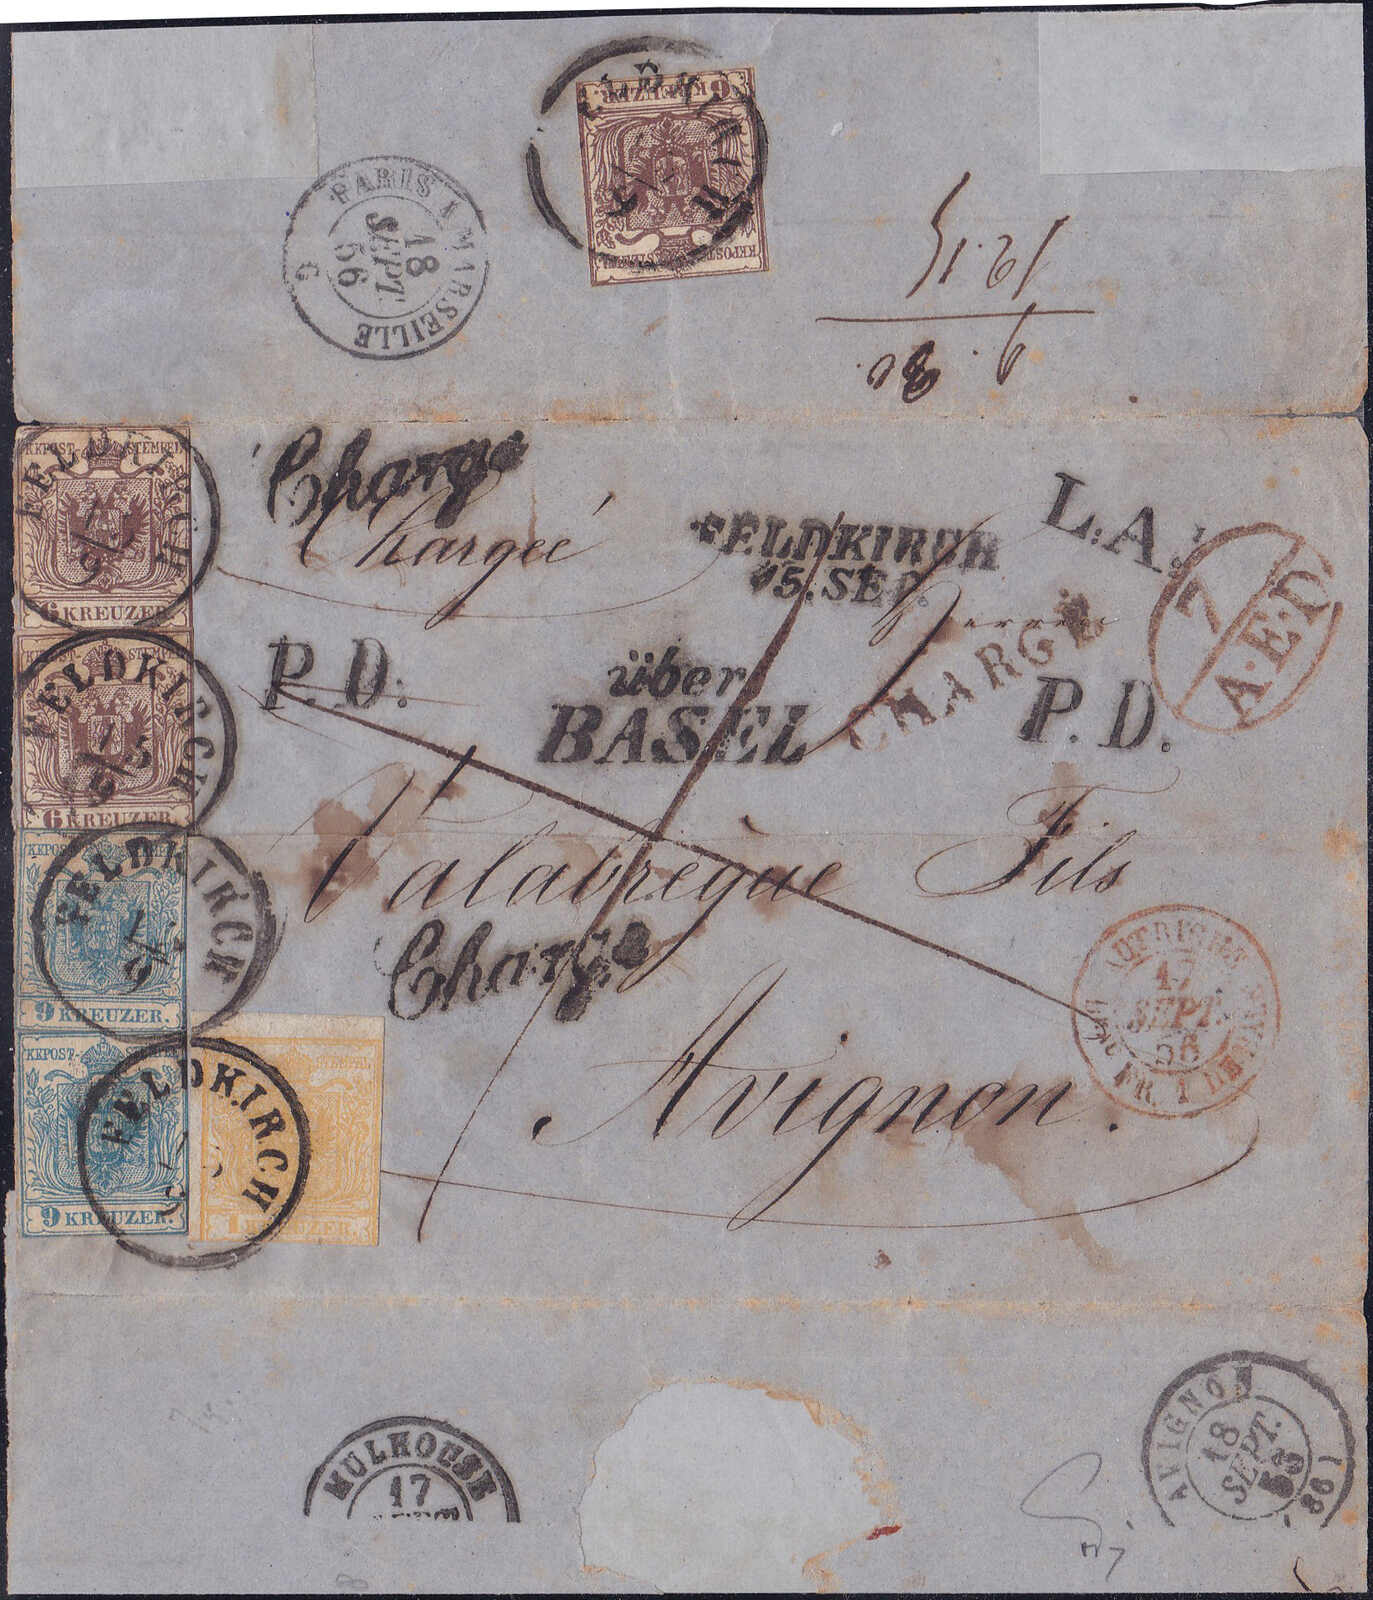 6 KREUZER.
KKPOST-STEMPEL
FELDKIRCH
PARIS A MARSEILLE
18
SEPT
56
G
12.15
9.
KKPOST-STEMPEL
6 KREUZER.
FELDKIRCH
Chargé
Chargée
FELDKIRCH
15. SEP.
L:A.
7
A.E.D
Herren
CHARGÉ
KKPOST-STEMPEL
6 KREUZER.
FELDKIRCH
P.D.
über
BASEL
P.D.
Valabregue Fils
KKPOST-STEMPEL
9 KREUZER.
FELDKIRCH
Chargé
AUTRICHE
17
SEPT.
56
Avignon.
KKPOST-STEMPEL
9 KREUZER.
FELDKIRCH
1 KREUZER.
MULHOUSE
17
AVIGNON
18
SEPT.
56
(86)